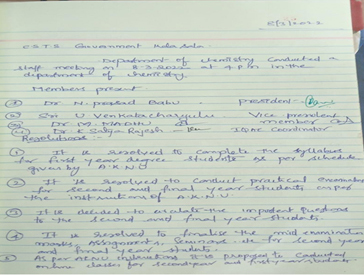 8/3/2022
C S T S Government Kolasala.
Department of chemistry conducted a
staff meeting on 8-3-2022 at 4 p.m in the
department of chemistry.
Members present.
① Dr N. prasad Babu - president -
② Sri U Venkata charyulu Vice president
③ Dr. M. PRADHU member
④ Dr K Satya Rajesh - IQAC Coordinator
Resolutions
① It is resolved to complete the syllabus
for first year degree students as per schedule
given by A K N U
② It is resolved to conduct practical examinations
for second and final year students as per
the instructions of A.K.N.U.
③ It is decided to circulate the important questions
to the second and final year students.
④ It is resolved to finalise the mid examination
marks, assignments, seminars etc for second year
and final year students.
⑤ As per AKNU instructions it is proposed to conduct
online classes for second year and first year students